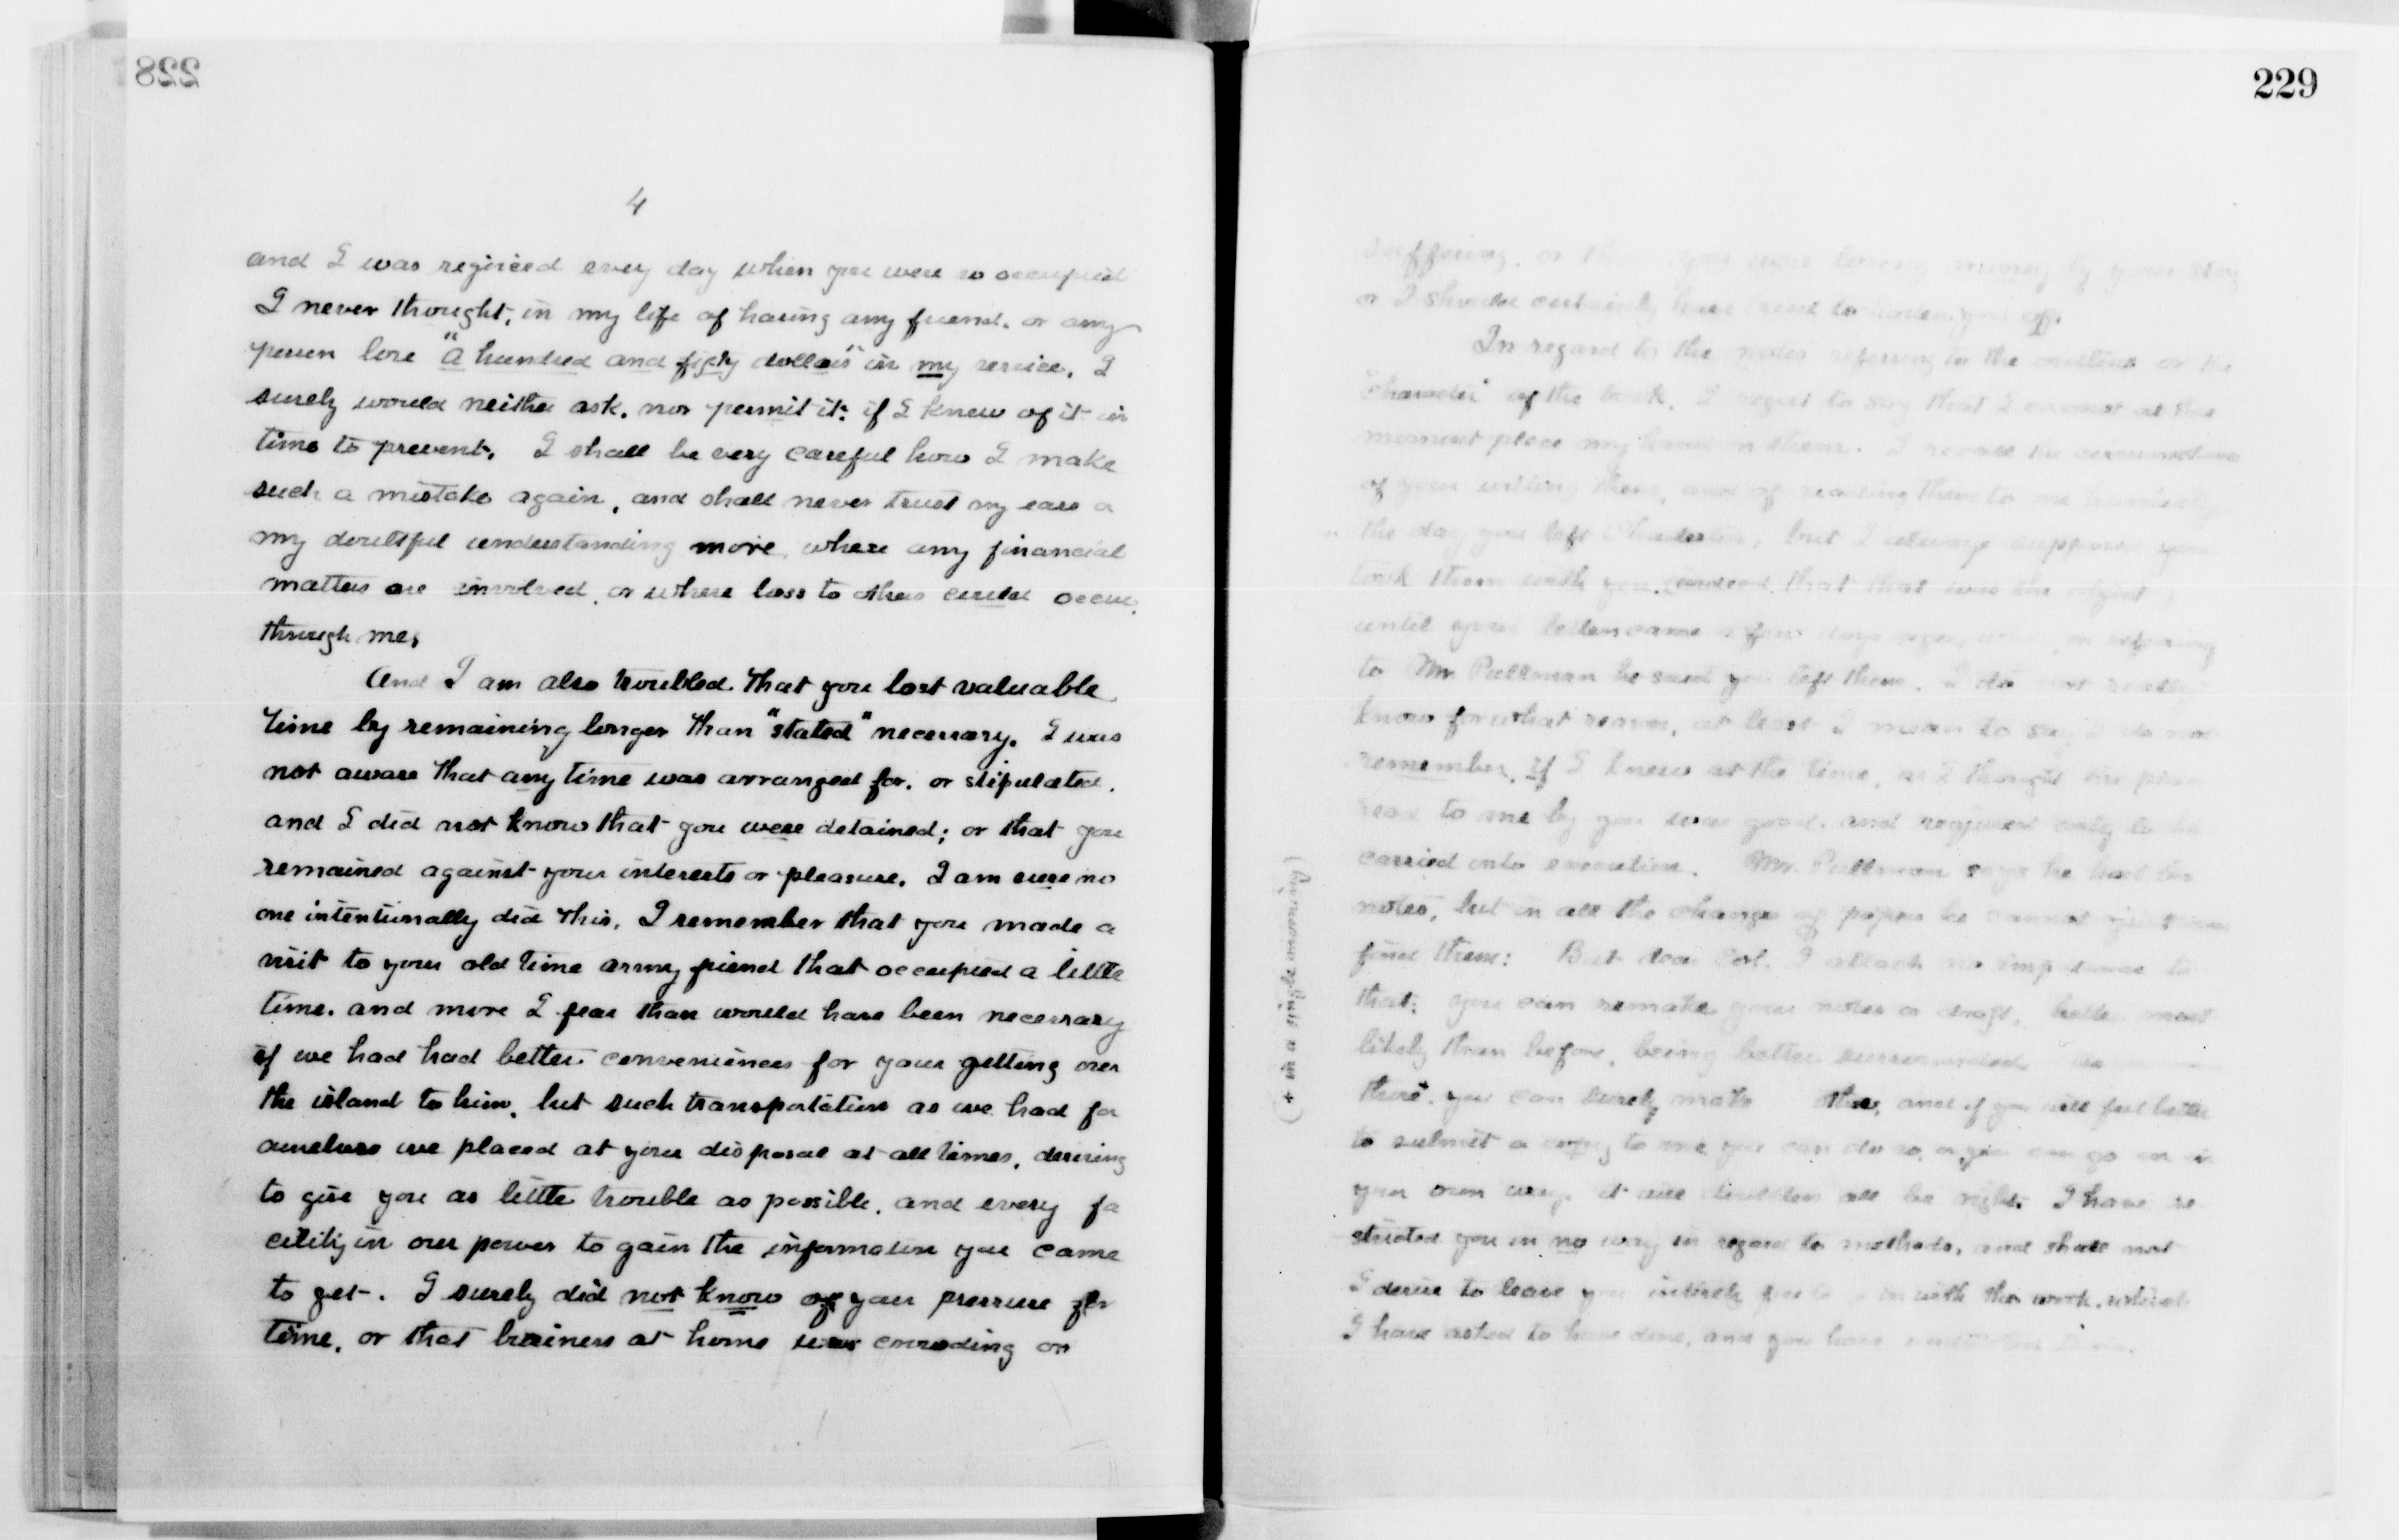 228
4
and I was rejoiced every day when you were so occupied
I never thought, in my life of having any friend, or any
person lose "a hundred and fifty dollars" in my service. I
surely would neither ask, nor permit it: if I knew of it in
time to prevent. I shall be very careful how I make
such a mistake again, and shall never trust my ears or
my doubtful understanding more, where any financial
matters are involved, or where loss to others could occur
through me,
And I am also troubled that you lost valuable
time by remaining longer than "stated" necessary. I was
not aware that any time was arranged for, or stipulated,
and I did not know that you were detained; or that you
remained against your interests or pleasure. I am sure no
one intentionally did this. I remember that you made a
visit to your old time army friend that occupied a little
time, and more I fear than would have been necessary
if we had had better conveniences for your getting over
the island to him, but such transportation as we had for
ourselves we placed at your disposal at all times, desiring
to give you as little trouble as possible, and every fa
cility in our power to gain the information you came
to get. I surely did not know of your pressure for
time, or that business at home was crowding or
229
suffering, or that you were losing money by your stay
or I should certainly have tried to hasten you off.
In regard to the notes referring to the outline or the
"character" of the book, I regret to say that I cannot at this
moment place my hand on them. I recall the circumstance
of your writing them, and of reading them to me hurriedly
the day you left Charleston, but I always supposed you
took them with you, indeed that that was the object
until your letter came a few days ago, on referring
to Mr Pullman he said you left them. I do not really
know for what reason, at least I mean to say I do not
remember, if I knew at the time, as I thought the plan
read to me by you was good, and required only to be
carried into execution. Mr. Pullman says he had the
notes, but in all the changes of papers he cannot just now
find them: But dear Col. I attach no importance to
that: you can remake your notes or draft, better most
likely than before, being better surrounded
there. you can surely make and if you will feel better
to submit a copy to me you can do so, or you can go on in
your own way, it will doubtless all be right. I have re
stricted you in no way in regard to methods, and shall not
I desire to leave you entirely free with the work, which
I have asked to have done, and you have